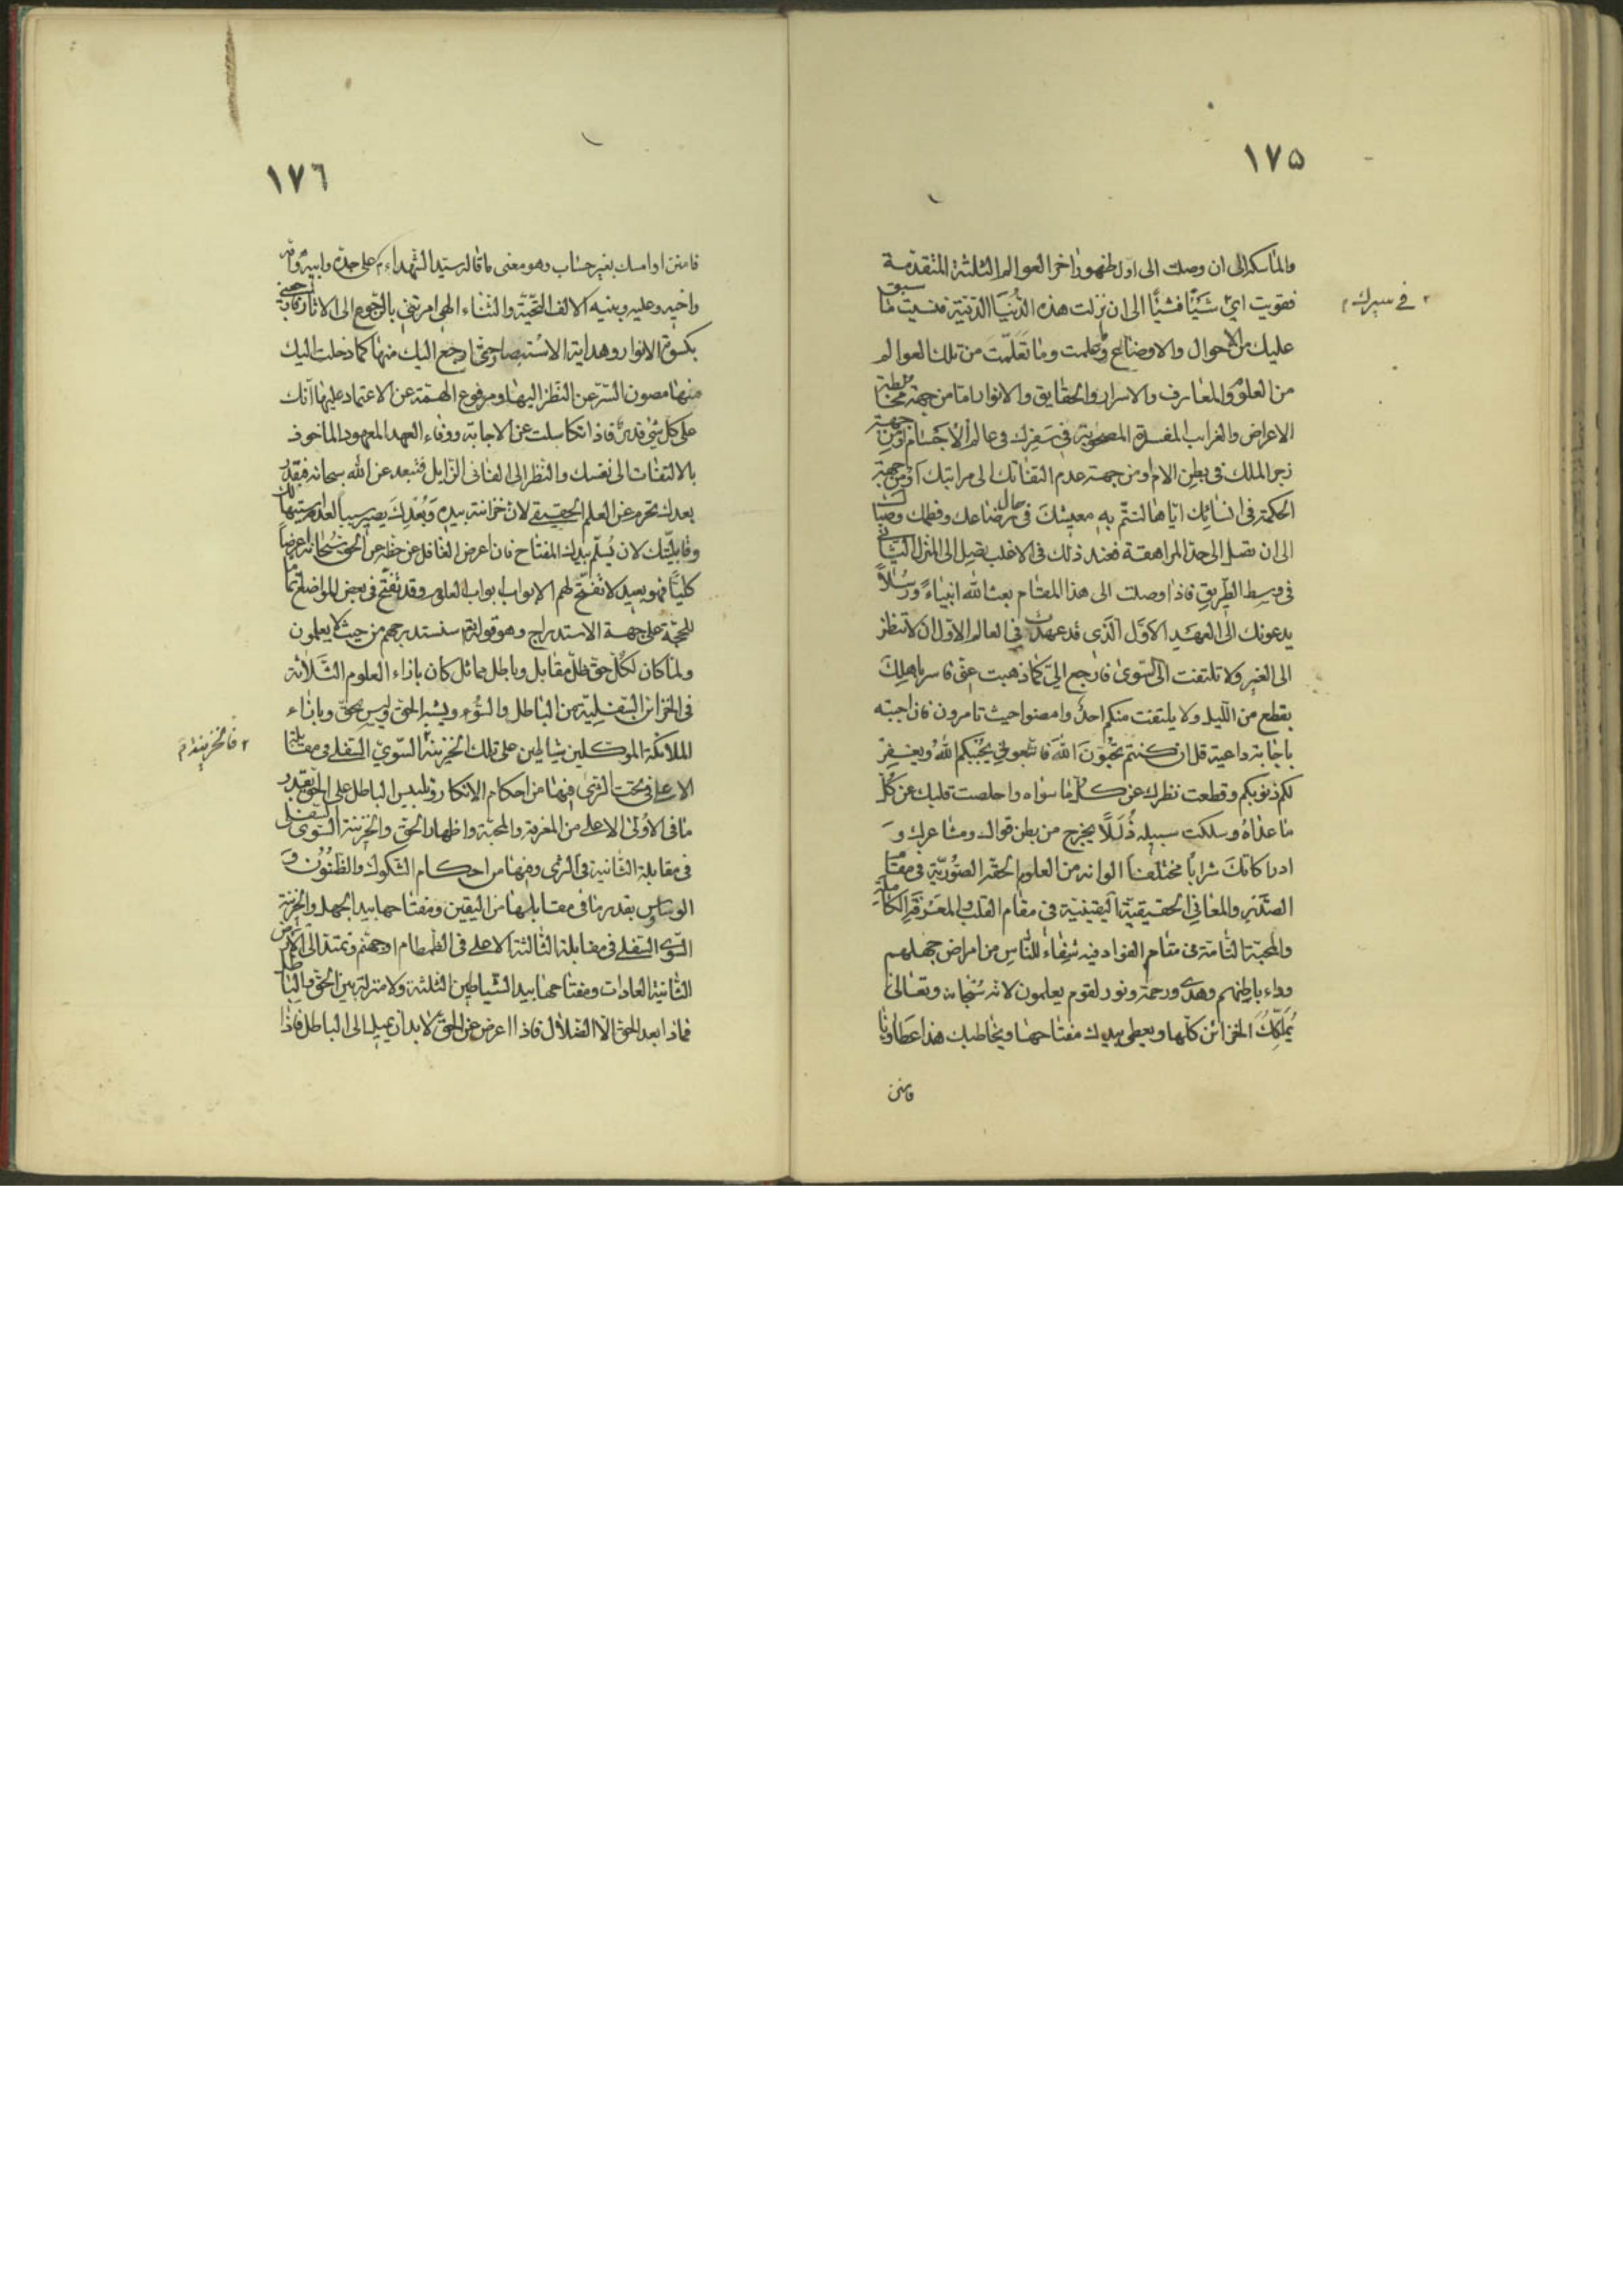 ١٧٥
والماسكة الى ان وصلت الى اول ظهور اخر العوالم الثلثة المتقدمة
فقويت اي شيئا فشيئا الى ان نزلت هذه الدنيا الدنية فنسيت ما سبق
في سيرك
عليك من الاحوال والاوضاع وعلمت وما تعلمت من تلك العوالم
من العلوم والمعارف والاسرار والحقايق والانوار اما من جهة مخالطة
الاعراض والغرايب المفسدة المصحوبة في سفرك في عالم الاجسام او من جهة
زجر الملك في بطن الام او من جهة عدم التفاتك الى مراتبك او من جهة
الحكمة في انسائك اياها لتتم به معيشتك في حال رضاعك وفطمك وصباك
الى ان تصل الى حد المراهقة فعند ذلك في الاغلب تصل الى المنزل الثاني
في وسط الطريق فاذا وصلت الى هذا المقام بعث الله انبياء ورسلا
يدعونك الى العهد الاول الذي قد عهدت في العالم الاول ان لا تنظر
الى الغير ولا تلتفت الى السوى فارجع الي كما ذهبت عني فاسر باهلك
بقطع من الليل ولا يلتفت منكم احد وامضوا حيث تامرون فان اجبته
باجابة داعية قل ان كنتم تحبون الله فاتبعوني يحببكم الله ويغفر
لكم ذنوبكم وقطعت نظرك عن كل ما سواه واخلصت قلبك عن كل
ما عداه وسلكت سبيله ذللا يخرج من بطن قوالك ومشاعرك و
ادراكاتك شرابا مختلفا الوانه من العلوم الحقة الصورية في مقام
الصدر والمعاني الحقيقية اليقينية في مقام القلب والمعرفة الكاملة
والمحبة التامة في مقام الفواد فيه شفاء للناس من امراض جهلهم
وداء باطنهم وهدى ورحمة ونور لقوم يعلمون لانه سبحانه وتعالى
يملكك الخزائن كلها ويعطي بيدك مفتاحها ويخاطبك هذا عطاونا
فامنن
١٧٦
فامنن او امسك بغير حساب وهو معنى ما قاله سيد الشهداء على جده وابيه وامه
واخيه وعليه وبنيه الاف التحية والثناء الهي امرتني بالرجوع الى الاثار فارجعني
بكسوة الانوار وهداية الاستبصار حتى ارجع اليك منها كما دخلت اليك
منها مصون السر عن النظر اليها ومرفوع الهمة عن الاعتماد عليها انك
على كل شيء قدير فاذا تكاسلت عن الاجابة ووفاء العهد المعهود الماخوذ
بالالتفات الى نفسك والنظر الى الفاني الزايل فتبعد عن الله سبحانه فبقدر
بعدك تحرم عن العلم الحقيقي لان خزائنه بيده وبعدك يصير سببا لعدم
وقابليتك لان يسلم بيدك المفتاح فان اعرض الغافل عن حظه عن الحق سبحانه اعراضا
كليا فهو بعيد لا تفتح لهم الابواب ابواب العلوم وقد تفتح في بعض المواضع
للحجة على جهة الاستدراج وهو قوله تعالى سنستدرجهم من حيث لا يعلمون
ولما كان لكل حق ظل مقابل وباطل مماثل كان بازاء العلوم الثلاثة
في الخزائن السفلية من الباطل والسوء ويشبه الحق وليس بحق وبازاء
الملائكة الموكلين شياطين على تلك الخزينة السوى السفلى في مقابلة
فالخزينة
الاعلى في تحت الثرى فيها من احكام الانكار وتلبيس الباطل على الحق بقدر
ما في الاولى الاعلى من المعرفة والمحبة واظهار الحق والخزينة السوى السفلى
في مقابلة الثانية في الثرى وفيها من احكام الشكوك والظنون و
الوساوس بقدر ما في مقابلها من اليقين ومفتاحها بيد الجهل والخزينة
السوى السفلى في مقابلة الثالثة الاعلى في الطمطام او جهنم وتمتد الى الارض
الثانية العادات ومفتاحها بيد الشياطين الثلثة ولا منزلة بين الحق والباطل
فماذا بعد الحق الا الضلال فاذا اعرض عن الحق لا بد ان يميل الى الباطل فاذا